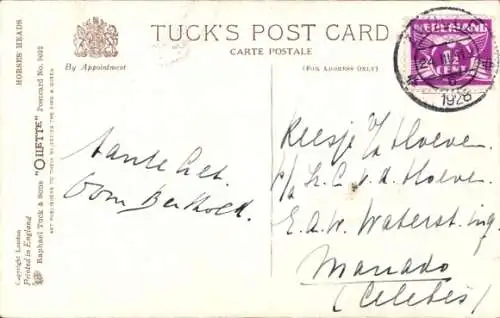 TUCK'S POST CARD
CARTE POSTALE
By Appointment
(FOR ADDRESS ONLY)
HORSES HEADS.
Raphael Tuck & Sons "OILETTE" Postcard No. 3092
ART PUBLISHERS TO THEIR MAJESTIES THE KING & QUEEN
Copyright London
Printed in England
NEDERLAND
1928
tante Bet.
Oom Berthold.
Keesje v/d Hoeven
p/a L. C. v. d. Hoeven
E. A. W. Waterst. ing.
Manado
(Celebes)